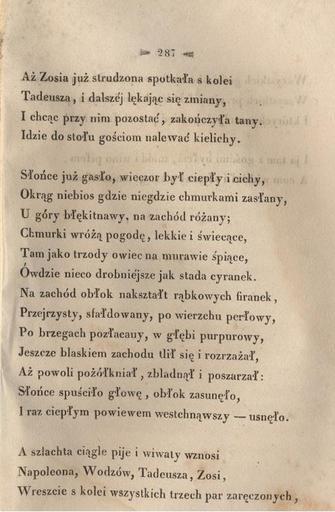 287
Aż Zosia już strudzona spotkała s kolei
Tadeusza, i dalszéj lękając się zmiany,
I chcąc przy nim pozostać, zakończyła tany.
Idzie do stołu gościom nalewać kielichy.
Słońce już gasło, wieczor był ciepły i cichy,
Okrąg niebios gdzie niegdzie chmurkami zasłany,
U góry błękitnawy, na zachód różany;
Chmurki wróżą pogodę, lekkie i świecące,
Tam jako trzody owiec na murawie śpiące,
Ówdzie nieco drobniéjsze jak stada cyranek.
Na zachód obłok nakształt rąbkowych firanek,
Przejrzysty, sfałdowany, po wierzchu perłowy,
Po brzegach pozłacany, w głębi purpurowy,
Jeszcze blaskiem zachodu tlił się i rozrzażał,
Aż powoli pożółkniał, zbladnął i poszarzał:
Słońce spuściło głowę, obłok zasunęło,
I raz ciepłym powiewem westchnąwszy — usnęło.
A szlachta ciągle pije i wiwaty wznosi
Napoleona, Wodzów, Tadeusza, Zosi,
Wreszcie s kolei wszystkich trzech par zaręczonych,